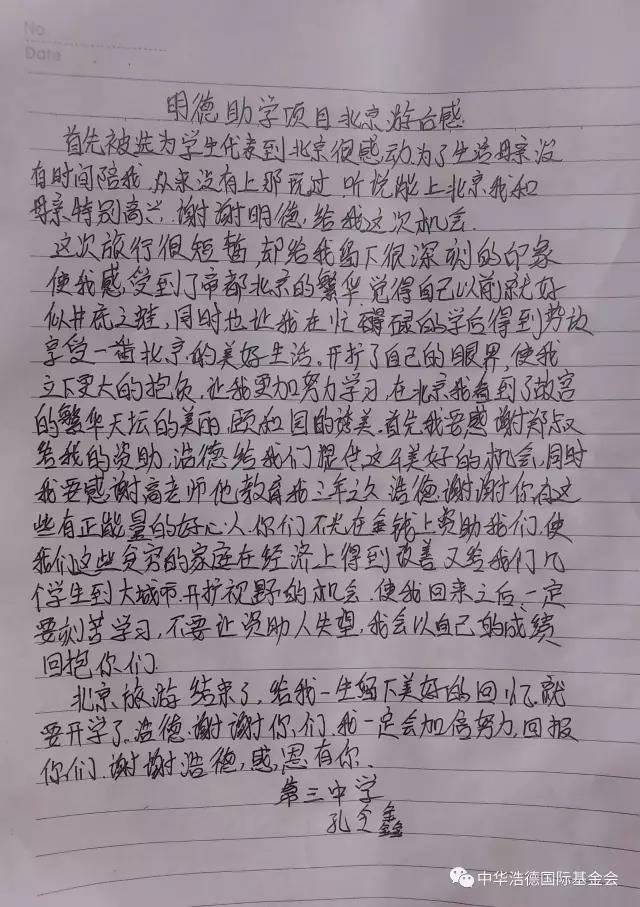 No
Date
明德助学项目北京游后感
首先被选为学生代表到北京很感动,为了生活母亲没
有时间陪我,从来没有上那玩过,听说能上北京我和
母亲特别高兴,谢谢明德,给我这次机会.
这次旅行很短暂 却给我留下很深刻的印象
使我感受到了帝都北京的繁华,觉得自己以前就好
似井底之蛙,同时也让我在忙碍碌的学后得到势放
享受一番北京的美好生活,开扩了自己的眼界,使我
立下更大的抱负,让我更加努力学习,在北京我看到了故宫
的繁华天坛的美丽,颐和园的 美.首先我要感谢郑叔
给我的资助,浩德给我们提供这么美好的机会,同时
我要感谢高老师他教育我三年之久 浩德谢谢你,有这
些有正能量的好心人.你们不光在金钱上资助我们,使
我们这些贫穷的家庭在经济上得到改善 又给我们几
个学生到大城市.开扩视野的机会.使我回来之后,一定
要刻苦学习,不要让资助人失望,我会以自己的成绩
回抱你们.
北京旅游结束了,给我一生留下美好的回忆,就
要开学了,浩德.谢谢你们.我一定会加倍努力,回报
你们.谢谢浩德,感恩有你.
第三中学
孔 鑫
中华浩德国际基金会